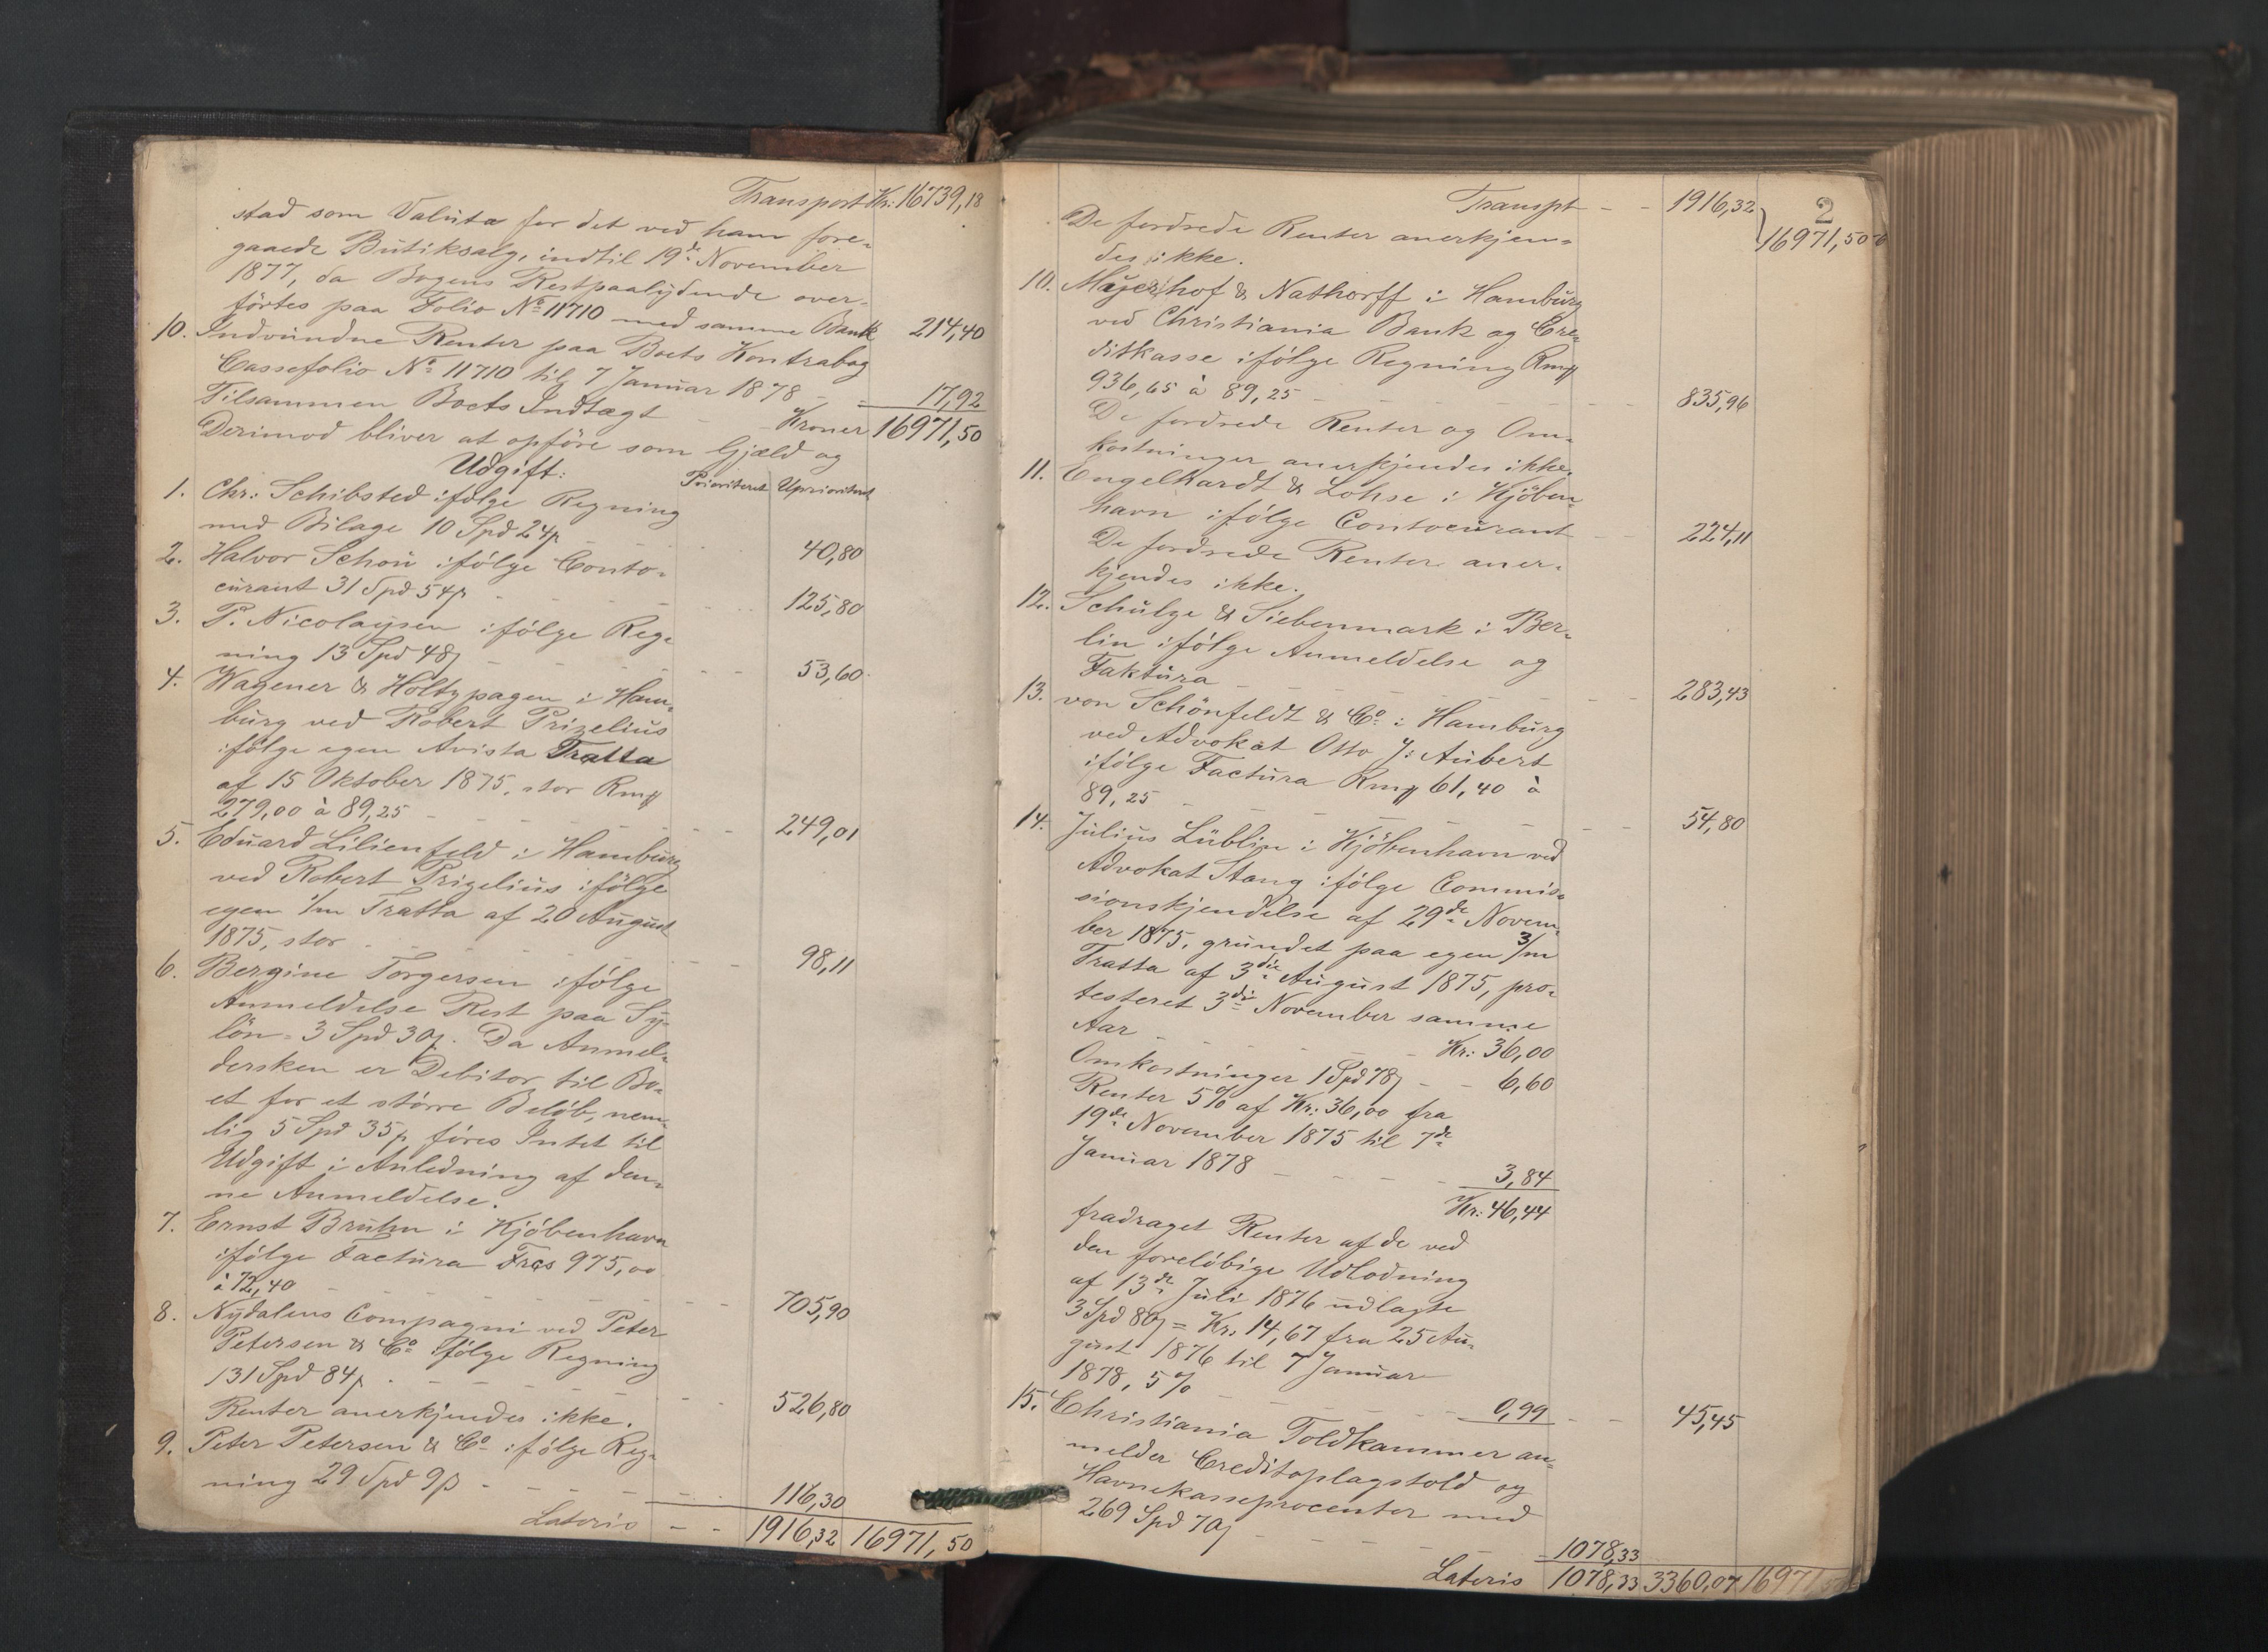 Transport Kr: 16739,18
stad som Valuta for det ved ham fore-
gaaede Butiksalg, indtil 19de November
1877, da Bogens Restpaalydende over-
førtes paa Folio No 11710 med samme Bank 214,40
10. Indvundne Renter paa Boets Kontrabog
Cassefolio No 11710 til 7 Januar 1878 - - 17,92
Tilsammen Boets Indtægt - - Kroner 16971,50
Derimod bliver at opføre som Gjæld og
Udgift: Prioriteret Uprioriteret
1. Chr: Schibsted ifølge Regning
med Bilage 10 Spd 24β - - 40,80
2. Halvor Schou ifølge Conto-
curant 31 Spd 54β - - 125,80
3. P. Nicolaysen ifølge Reg-
ning 13 Spd 48β - - 53,60
4. Wagener & Höltypagen i Ham-
burg ved Robert Prizelius
ifølge egen Avista Tratta
af 15 Oktober 1875, stor Rmk
279,00 à 89,25 - - 249,01
5. Eduard Lilienfeld i Hamburg
ved Robert Prizelius ifølge
egen 1/m Tratta af 20 August
1875, stor - - 98,11
6. Bergine Torgersen ifølge
Anmeldelse Rest paa Sy-
løn = 3 Spd 30β. Da Anmel-
dersken er Debitor til Bo-
et for et større Beløb, nem-
lig 5 Spd 35β, føres Intet til
Udgift i Anledning af den-
ne Anmeldelse.
7. Ernst Bruhn i Kjøbenhavn
ifølge Factura Frcs 975,00
à 72,40 - - 705,90
8. Nydalens Compagni ved Peter
Petersen & Co ifølge Regning
131 Spd 84β - - 526,80
Renter anerkjendes ikke.
9. Peter Petersen & Co ifølge Reg-
ning 29 Spd 9β - - 116,30
Lateris - - 1916,32 16971,50
2
Transpt - - 1916,32 16971,50
De fordrede Renter anerkjen-
des ikke.
10. Mayerhof & Nathorff i Hamburg
ved Christiania Bank og Cre-
ditkasse ifølge Regning Rmk
936,65 à 89,25 - - 835,96
De fordrede Renter og Om-
kostninger anerkjendes ikke.
11. Engelhardt & Lohse i Kjöben-
havn ifølge Contocurant - - 224,11
De fordrede Renter aner-
kjendes ikke.
12. Schulze & Siebenmark i Ber-
lin ifølge Anmeldelse og
Faktura - - 283,43
13. von Schönfeldt & Co i Hamburg
ved Advokat Otto J: Aubert
ifølge Factura Rmk 61,40 à
89,25 - - 54,80
14. Julius Lüblin i Kjöbenhavn ved
Advokat Stang ifølge Commis-
sionskjendelse af 29de Novem-
ber 1875, grundet paa egen 3/m
Tratta af 3die August 1875, pro-
testeret 3die November samme
Aar - - Kr: 36,00
Omkostninger 1 Spd 78β - - 6,60
Renter 5% af Kr: 36,00 fra
19de November 1875 til 7de
Januar 1878 - - 3,84
Kr: 46,44
fradraget Renter af de ved
den foreløbige Udlodning
af 13de Juli 1876 udlagte
3 Spd 80β = Kr: 14,67 fra 25 Au-
gust 1876 til 7 Januar
1878, 5% - - 0,99 - - 45,45
15. Christiania Toldkammer an-
melder Creditoplagstold og
Havnekasseprocenter med
269 Spd 70β - - 1078,33
Lateris 1078,33 3360,07 16971,50